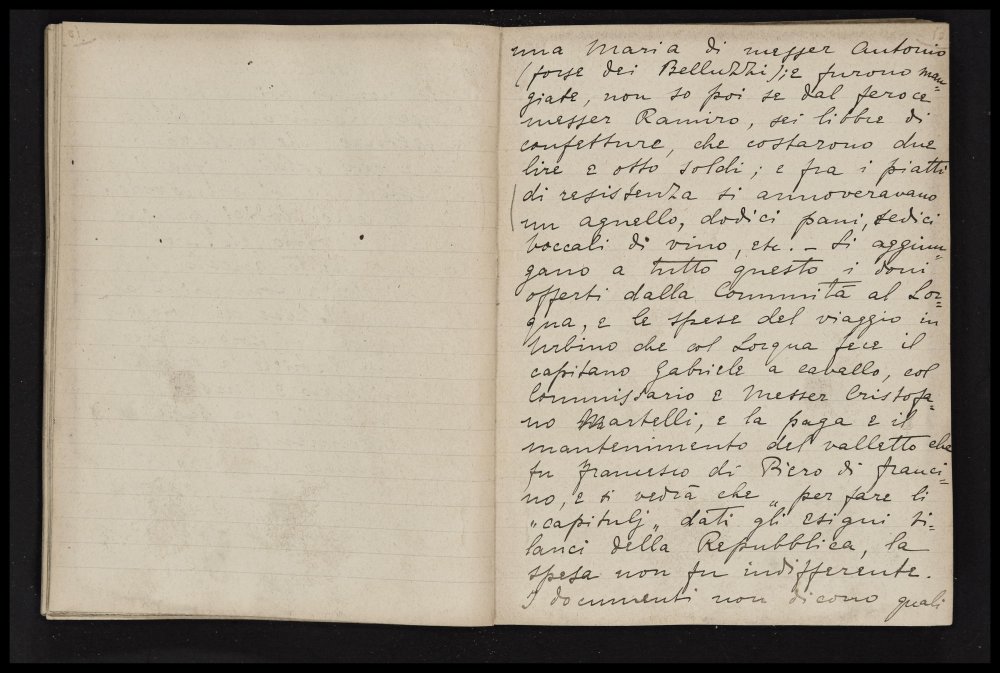 una Maria di messer Antonio
(forse dei Belluzzi); e furono man=
giate, non so poi se dal feroce
messer Ramiro, sei libbre di
confetture, che costarono due
lire e otto soldi; e fra i piatti
di resistenza si annoveravano
un agnello, dodici pani, sedici
boccali di vino, etc. - Si aggiun=
gano a tutto questo i doni
offerti dalla Comunità al Lor=
qua, e le spese del viaggio in
Urbino che col Lorqua fece il
capitano Gabriele a cavallo, col
Commissario e Messer Cristofa=
no Martelli, e la paga e il
mantenimento del valletto che
fu Francesco di Piero di Franci=
no, e si vedrà che „ per fare li
„ capitulj „ dati gli esigui bi=
lanci della Repubblica, la
spesa non fu indifferente.
I documenti non dicono quali